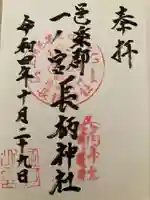 奉拝
邑楽郡
一ノ宮長柄神社
令和四年十月二十九日